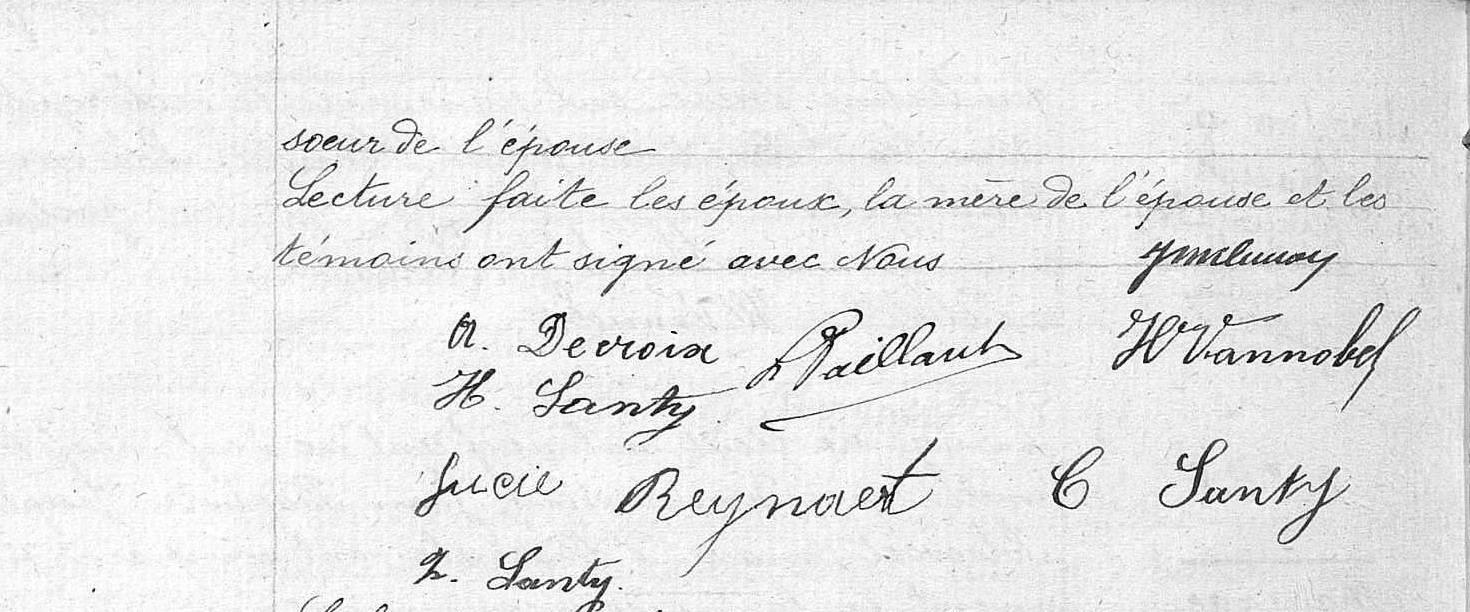 soeur de l'épouse
Lecture faite les époux, la mère de l'épouse et les
témoins ont signé avec Nous
A. Decroix L Paillart H Vannobel
H. Santy
Lucie Reynaert C Santy
Z. Santy.